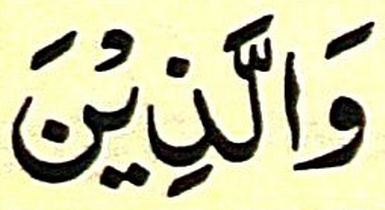 وَالَّذِيْنَ